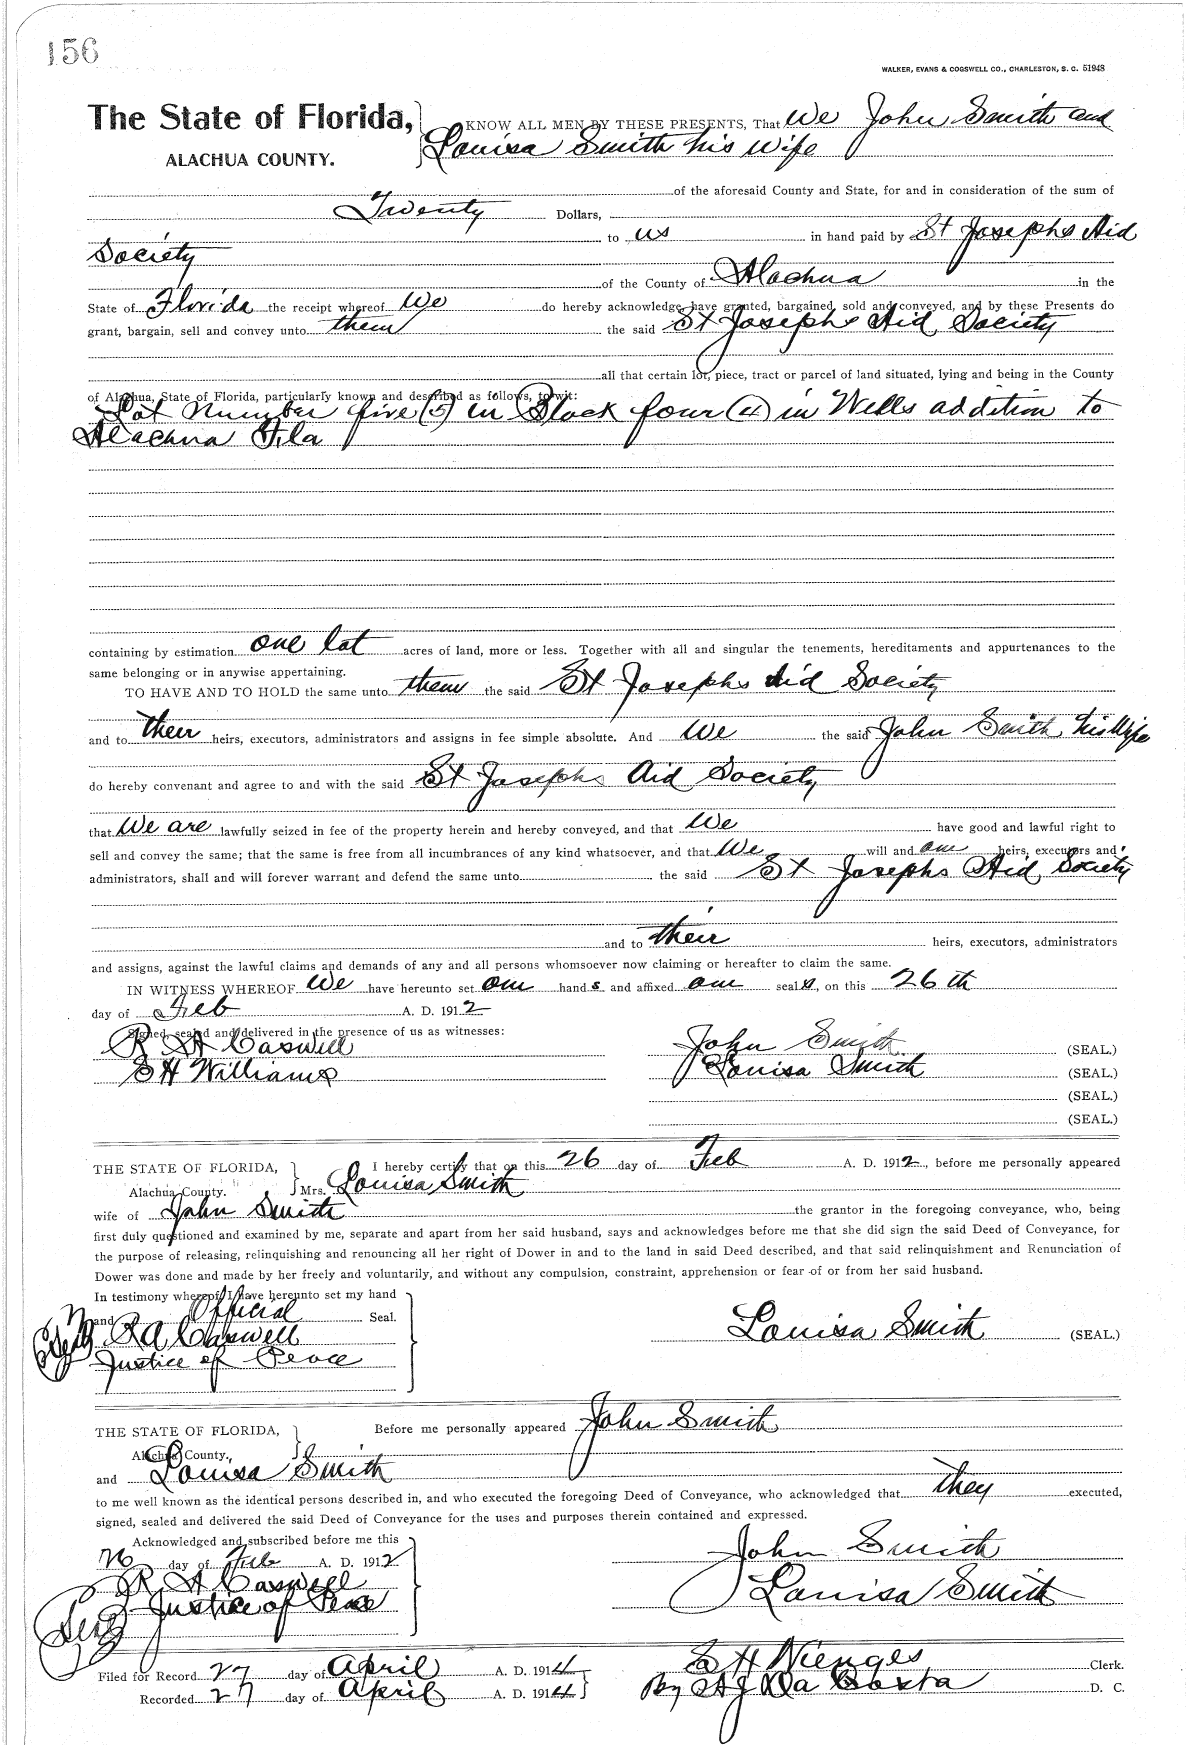 156
WALKER, EVANS & COGSWELL CO., CHARLESTON, S. C. 51948
The State of Florida,
ALACHUA COUNTY.
KNOW ALL MEN BY THESE PRESENTS, That We John Smith and
Louisa Smith his wife
of the aforesaid County and State, for and in consideration of the sum of
Twenty Dollars,
to us in hand paid by St Josephs Aid
Society
of the County of Alachua in the
State of Florida the receipt whereof We do hereby acknowledge, have granted, bargained, sold and conveyed, and by these Presents do
grant, bargain, sell and convey unto them the said St Josephs Aid Society
all that certain lot, piece, tract or parcel of land situated, lying and being in the County
of Alachua, State of Florida, particularly known and described as follows, to wit:
Lot Number five (5) in Block four (4) in Wells addition to
Alachua Fla
containing by estimation one lot acres of land, more or less. Together with all and singular the tenements, hereditaments and appurtenances to the
same belonging or in anywise appertaining.
TO HAVE AND TO HOLD the same unto them the said St Josephs Aid Society
and to their heirs, executors, administrators and assigns in fee simple absolute. And We the said John Smith, his Wife
do hereby convenant and agree to and with the said St Josephs Aid Society
that We are lawfully seized in fee of the property herein and hereby conveyed, and that We have good and lawful right to
sell and convey the same; that the same is free from all incumbrances of any kind whatsoever, and that We will and our heirs, executors and
administrators, shall and will forever warrant and defend the same unto the said St Josephs Aid Society
and to their heirs, executors, administrators
and assigns, against the lawful claims and demands of any and all persons whomsoever now claiming or hereafter to claim the same.
IN WITNESS WHEREOF We have hereunto set our hands and affixed our seals, on this 26th
day of Feb A. D. 1912
Signed, sealed and delivered in the presence of us as witnesses:
R A Caswell
S H Williams
John Smith (SEAL.)
Louisa Smith (SEAL.)
(SEAL.)
(SEAL.)
THE STATE OF FLORIDA,
Alachua County.
I hereby certify that on this 26 day of Feb A. D. 1912, before me personally appeared
Mrs. Louisa Smith
wife of John Smith the grantor in the foregoing conveyance, who, being
first duly questioned and examined by me, separate and apart from her said husband, says and acknowledges before me that she did sign the said Deed of Conveyance, for
the purpose of releasing, relinquishing and renouncing all her right of Dower in and to the land in said Deed described, and that said relinquishment and Renunciation of
Dower was done and made by her freely and voluntarily, and without any compulsion, constraint, apprehension or fear of or from her said husband.
In testimony whereof I have hereunto set my hand
and Official Seal.
R A Caswell
Justice of Peace
Louisa Smith (SEAL.)
THE STATE OF FLORIDA,
Alachua County.
Before me personally appeared John Smith
and Louisa Smith
to me well known as the identical persons described in, and who executed the foregoing Deed of Conveyance, who acknowledged that they executed,
signed, sealed and delivered the said Deed of Conveyance for the uses and purposes therein contained and expressed.
Acknowledged and subscribed before me this
26 day of Feb A. D. 1912
R A Caswell
Justice of Peace
John Smith
Louisa Smith
Filed for Record 27 day of April A. D. 1914
Recorded 27 day of April A. D. 1914
S H Wienges Clerk.
By A J Da Costa D. C.